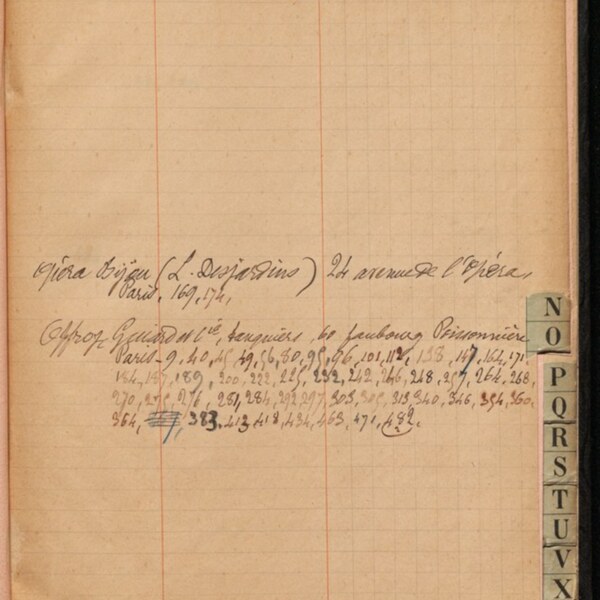 Opéra Bijou (L. Desjardins) 24 avenue de l'Opéra,
Paris, 169, 174,
Offroy, Guiard et Cie, banquiers, 60 faubourg Poissonnière
Paris - 9, 40, 45, 49, 56, 80, 95, 96, 101, 112, 138, 147, 164, 171,
184, 187, 189, 200, 222, 225, 232, 242, 246, 248, 257, 264, 268,
270, 275, 276, 281, 284, 292, 297, 303, 305, 313, 340, 346, 354, 360,
364, 383, 413, 418, 434, 463, 471, 482.
N
O
P
Q
R
S
T
U
V
X